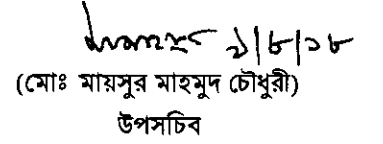 ১/৮/১৮
(মোঃ মায়সুর মাহমুদ চৌধুরী)
উপসচিব